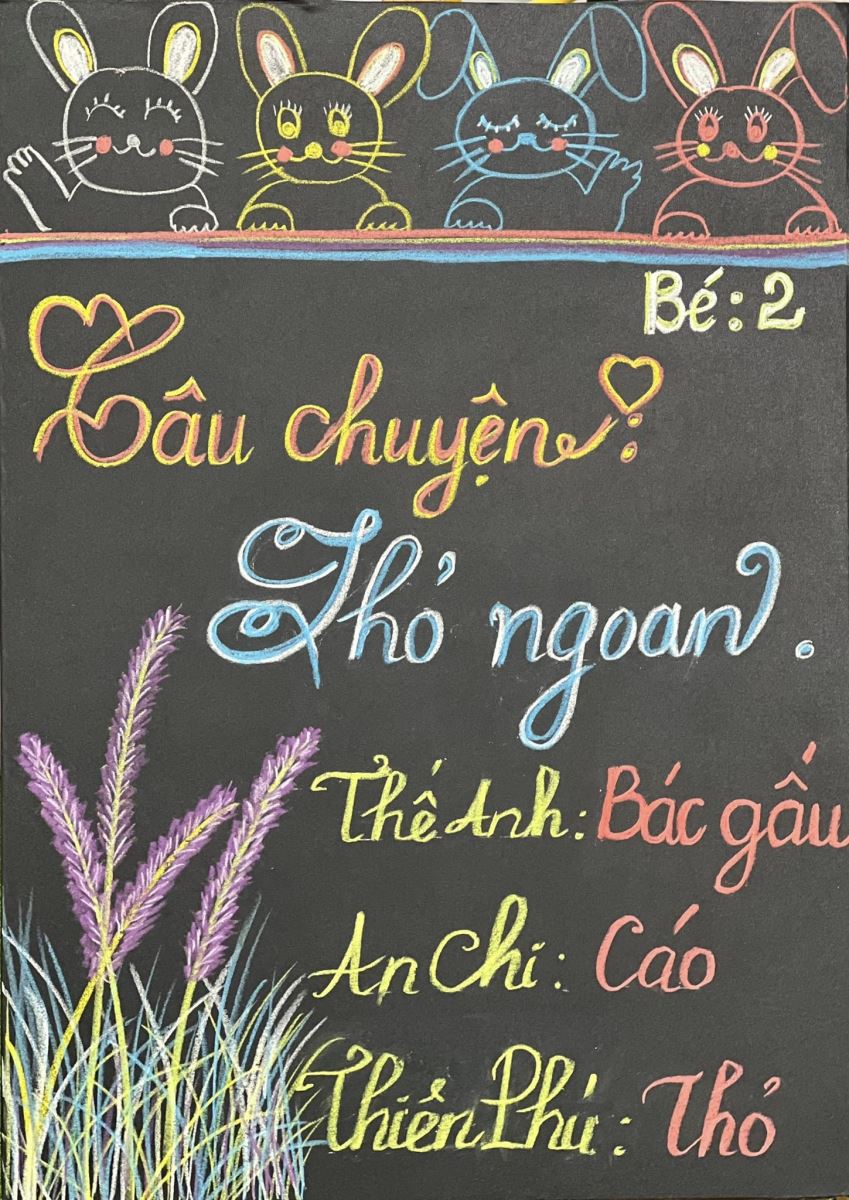 Bé: 2
Câu chuyện:
Thỏ ngoan.
Thế Anh: Bác gấu
An Chi: Cáo
Thiên Phú: Thỏ